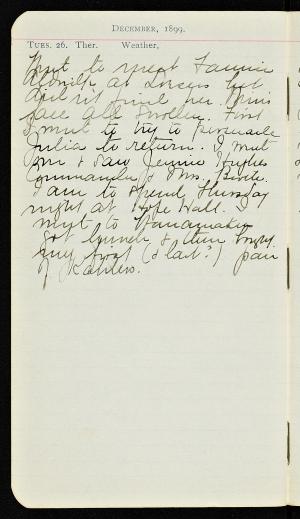 DECEMBER, 1899.
TUES. 26. Ther. Weather,
Went to meet Fannie
at Lovers but
did not find her. Mims
face all swollen. First
I must to try to persuade
Julia to return. I must
& saw Jennie Hughes
Commander & Mrs. Booth.
I am to spend Thursday
night at Hope Hall. I
went to Wanamakers
Got lunch & then bought
my first (& last?) pair
of Kahlers.